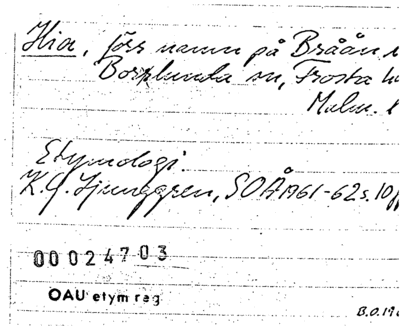 Hia, förr namn på Bråån i
Bosjkloster sn, Frosta
Malm.
Etymologi.
K.G. Ljunggren, SOÅ 1961-62 s. 10
00024703
OAU etym reg
B.O.